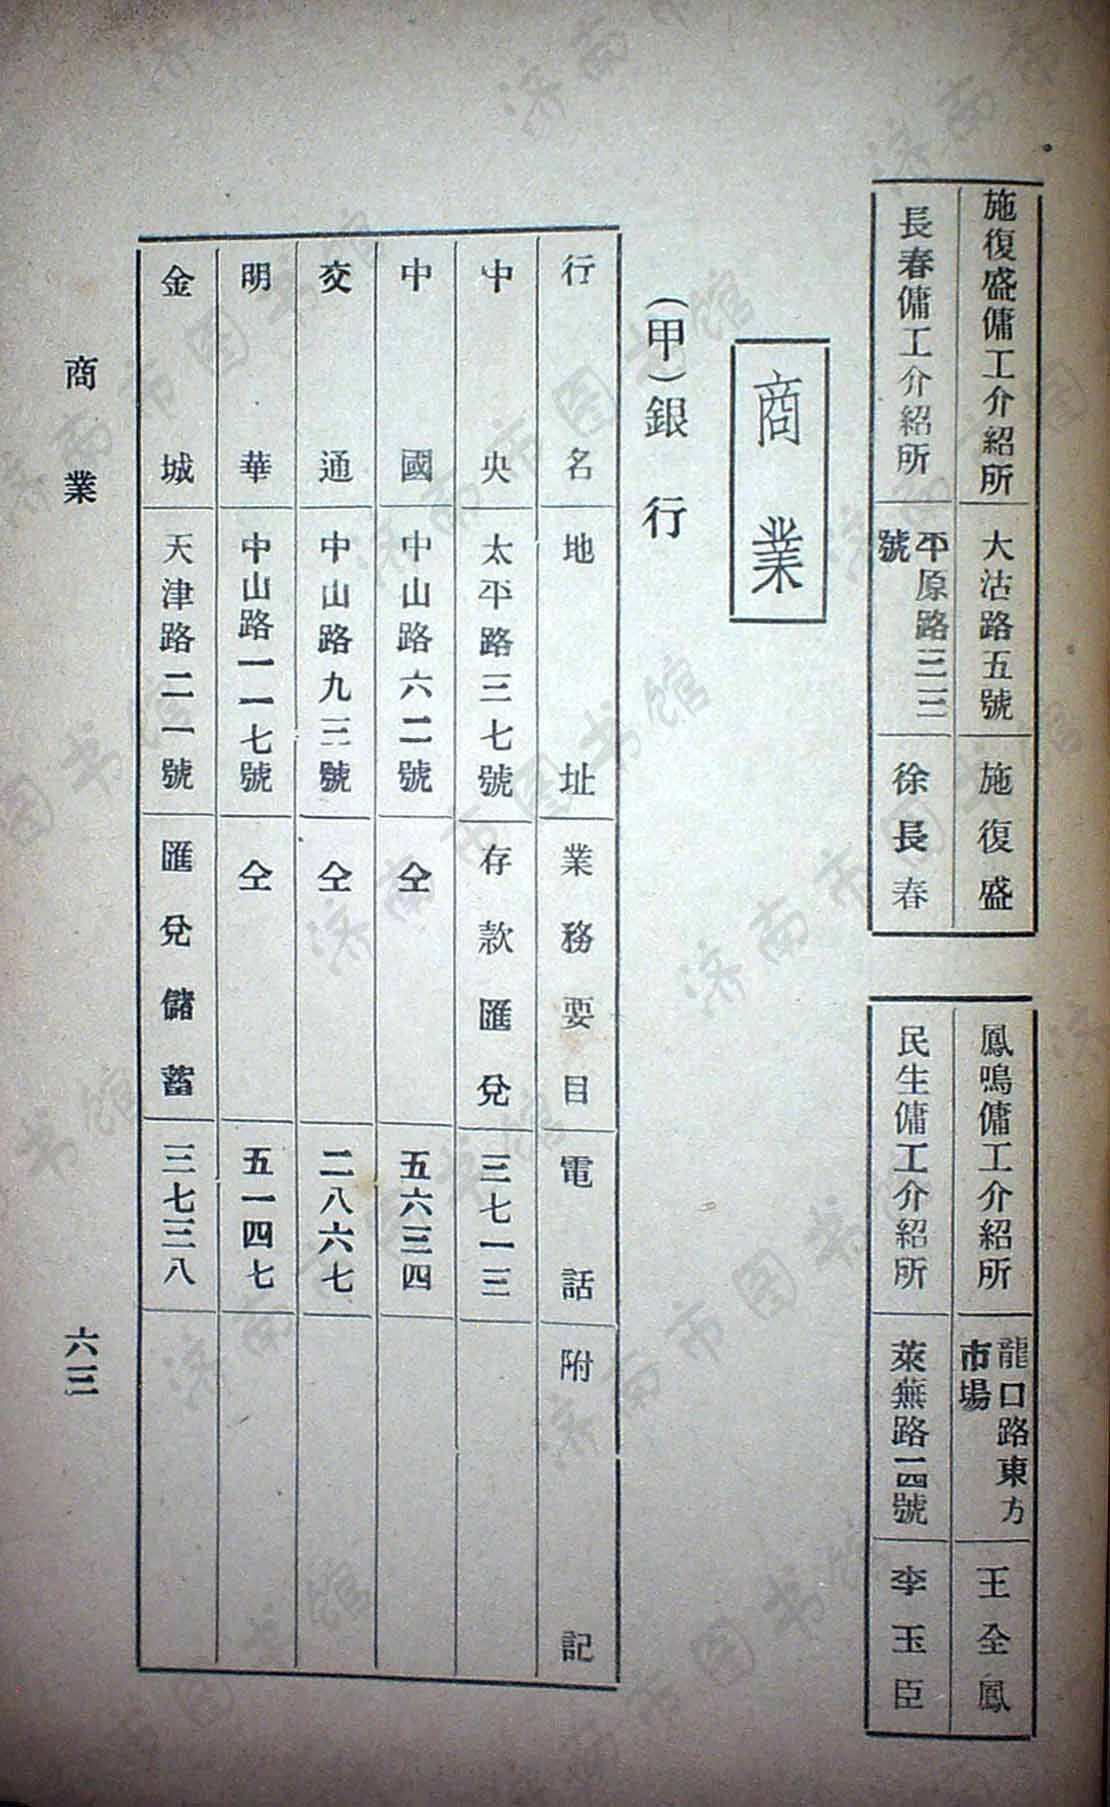 施復盛傭工介紹所 大沽路五號 施復盛
長春傭工介紹所 平原路三三號 徐長春
鳳鳴傭工介紹所 龍口路東方市場 王全鳳
民生傭工介紹所 萊蕪路一四號 李玉臣
商業
(甲)銀行
行名 地址 業務要目 電話 附記
中央 太平路三七號 存款匯兌 三七一三
中國 中山路六二號 仝 五六三四
交通 中山路九三號 仝 二八六七
明華 中山路一一七號 仝 五一四七
金城 天津路二一號 匯兌儲蓄 三七三八
商業 六三
济南市图书馆